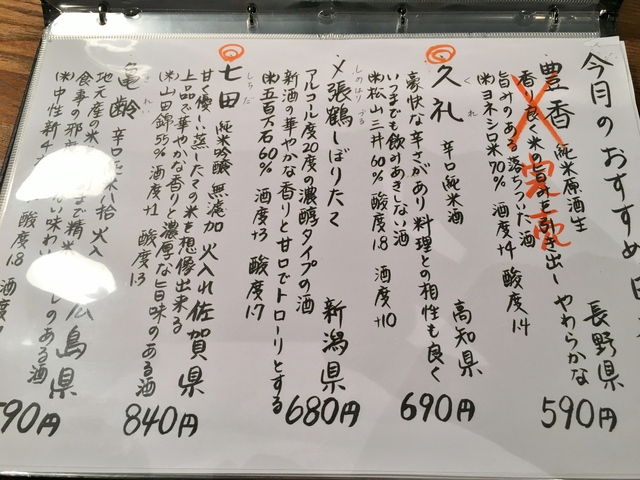 今月のおすすめ
豊香 純米原酒生 長野県
香り良く米の旨みを引き出しやわらかな
旨みのある落ちついた酒
㈱ヨネシロ米70% 酒度+4 酸度1.4
590円
久礼 辛口純米酒 高知県
くれ
豪快な辛さがあり料理との相性も良く
いつまでも飲みあきしない酒
㈱松山三井60% 酸度1.8 酒度+10
690円
〆張鶴しぼりたて 新潟県
しめはりづる
アルコール度20度の濃醇タイプの酒
新酒の華やかな香りと甘口でトローリとする
㈱五百万石60% 酒度+3 酸度1.7
680円
七田 純米吟醸 無濾加 火入れ 佐賀県
しちだ
甘く優しい蒸したての米を想像出来る
上品で華やかな香りと濃厚な旨味のある酒
㈱山田錦55% 酒度+1 酸度1.3
840円
亀齢 辛口純米八拾 火入 広島県
きれい
地元産の米
食事の邪 まで精米
い味わい レのある酒
㈱中性新4 酸度1.8
90円